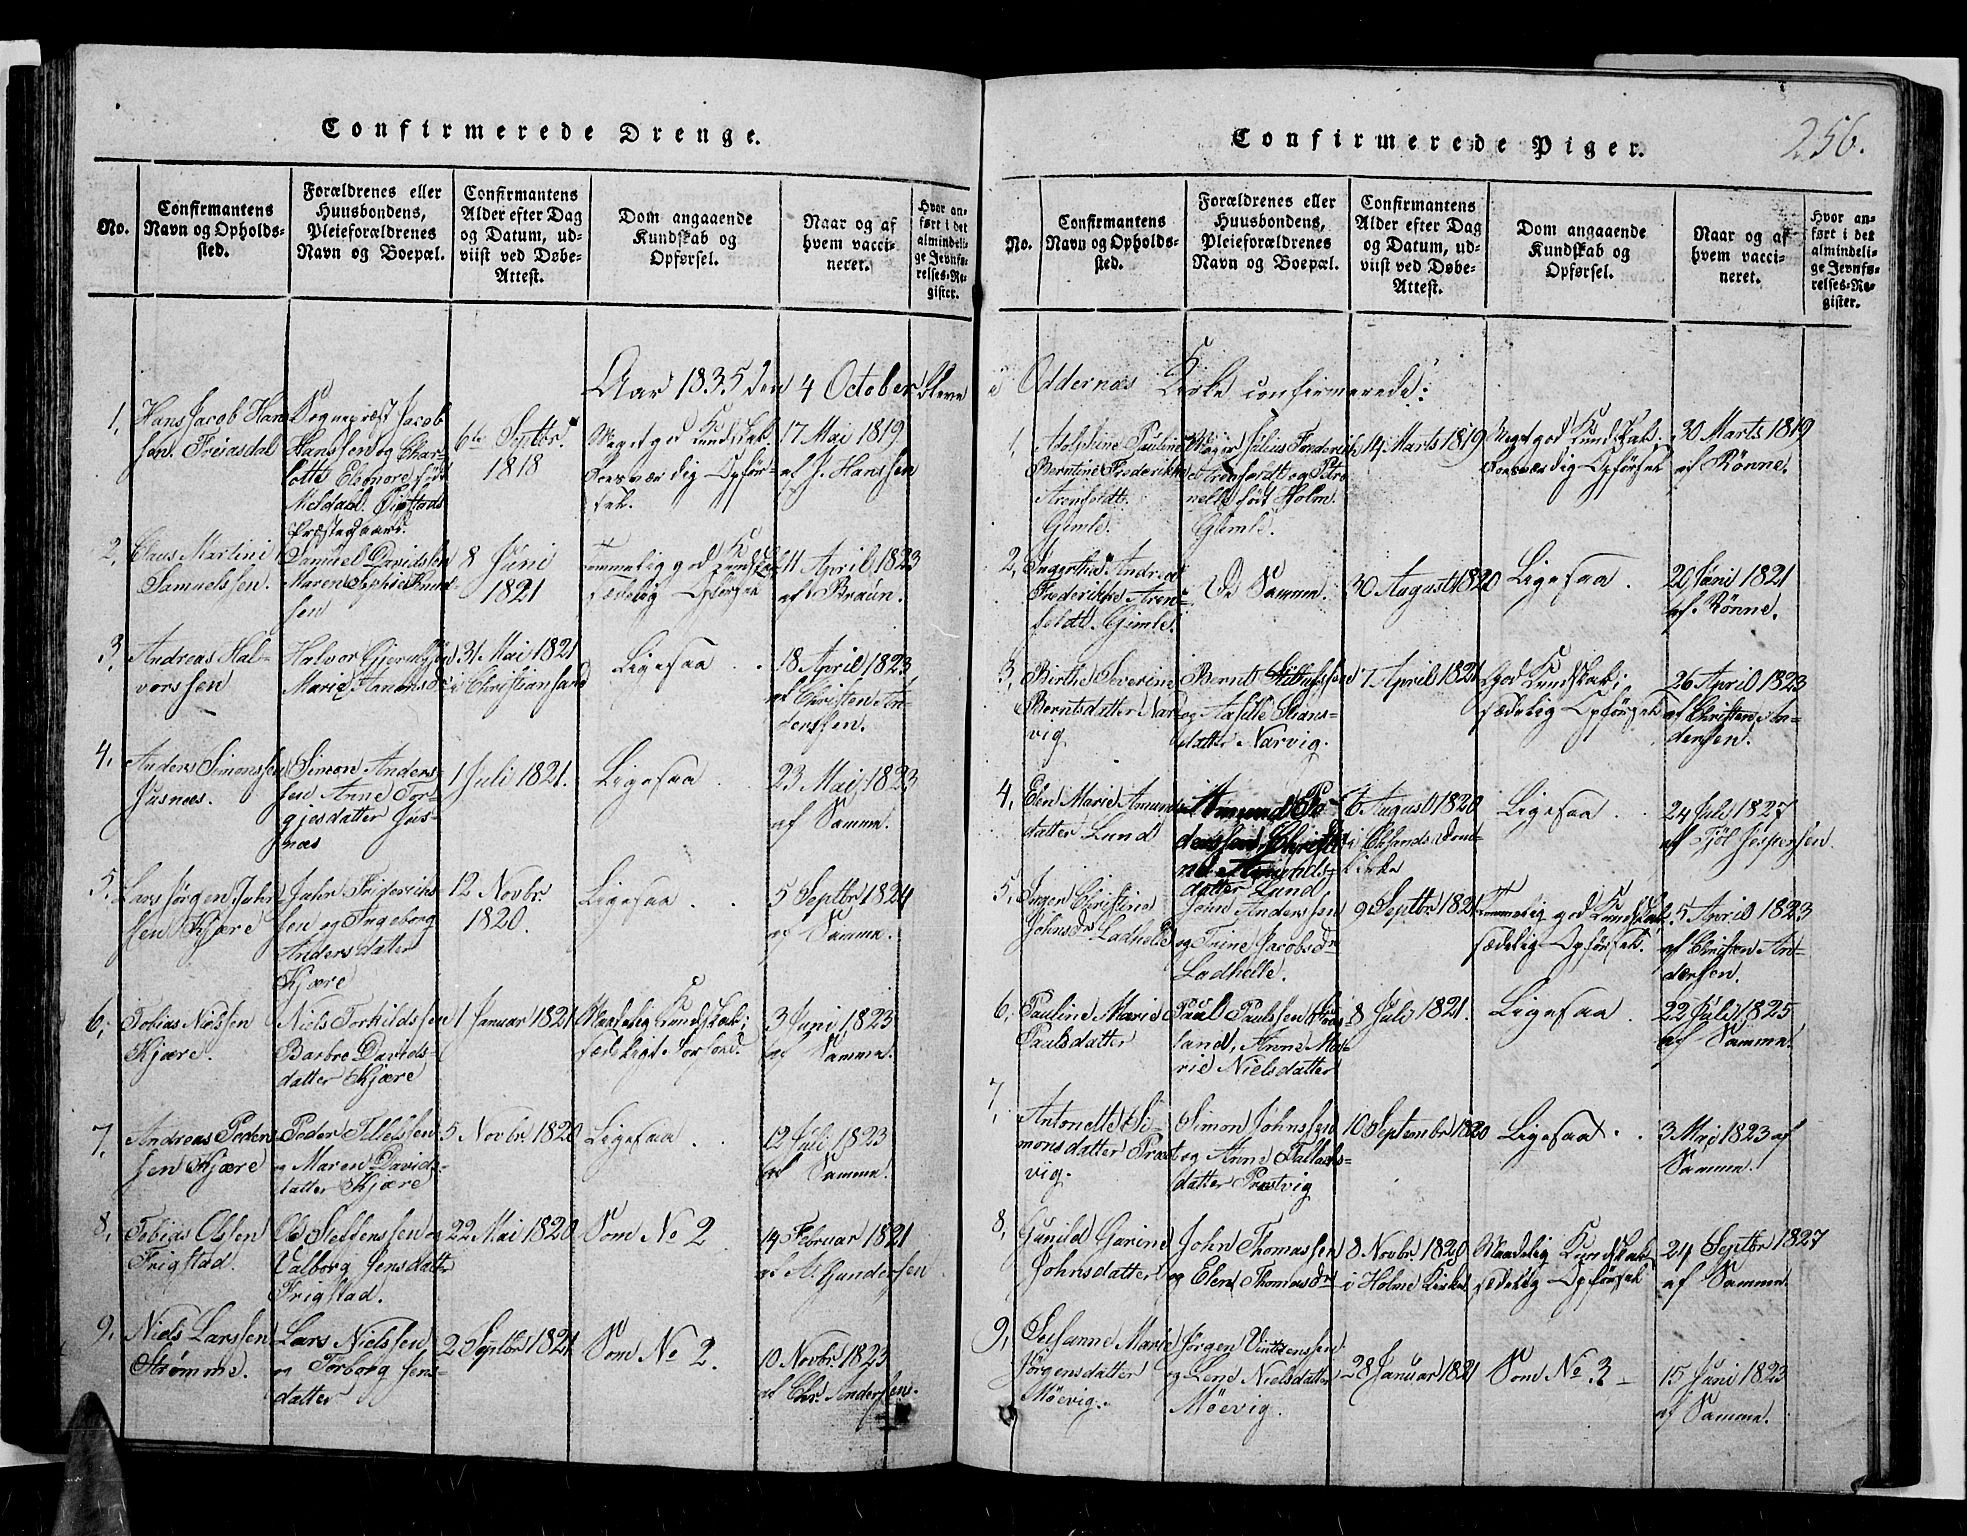 Confirmerede Drenge.
No.
Confirmantens
Navn og Opholds-
sted.
Forældrenes eller
Huusbondens,
Pleieforældrenes
Navn og Boepæl.
Confirmantens
Alder efter Dag
og Datum, ud-
viist ved Døbe-
Attest.
Dom angaaende
Kundskab og
Opførsel.
Naar og af
hvem vacci-
neret.
Hvor an-
ført i det
almindeli-
ge Jevnfø-
relses-Re-
gister.
Aar 1835 den 4 October bleve
1,
Hans Jacob Han-
sen. Frøiasdal
Sognepræst Jacob
Hanssen og Char-
lotte Eleonore født
Meldal.
Præstegaard.
6te Septbr.
1818
Meget god Kundskab.
Roesværdig Opfør-
sel.
17 Mai 1819
af J. Hanssen
2,
Claus Martini
Samuelssen.
Samuel Davidssen
Maren Sophie Knud-
sen
8 Juni
1821
Temmelig god Kundskab
sædelig Opførsel
11 April 1823
af Braun.
3,
Andreas Hal-
vorssen
Halvor
Marie
31 Mai 1821
i Christiansand
Ligesaa .
18 April 1823
af Christen An-
derssen.
4,
Anders Simonssen
Justnæs.
Simon Anders-
sen Anne Tor-
gjesdatter Just-
næs
1 Juli 1821.
Ligesaa .
23 Mai 1823
af Samme.
5,
Lars Jørgen Juhr-
sen Kjære
Juhr Friderik-
sen og Ingeborg
Andersdatter
Kjære
12 Novbr.
1820.
Ligesaa . .
5 Septbr 1824
af Samme.
6,
Tobias Nielssen
Kjære.
Niels Torkildssen
Barbre Davids-
datter Kjære
1 Januar 1821.
Maadelig Kundskab;
sædeligt Forhold.
3 Juni 1823
af Samme.
7,
Andreas Peder-
sen Kjære
Peder Tellefssen
og Maren Davids-
datter Kjære
5 Novbr 1820
Ligesaa .
12 Juli 1823
af Samme.
8,
Tobias Olssen
Frigstad.
Ole Steffenssen og
Valborg Jensdatter
Frigstad.
22 Mai 1820
Som No 2
14 Februar 1821
af A. Gundersen
9,
Niels Larssen
Strømme.
Lars Nielssen
og Torborg Jens-
datter
2 Septbr 1821.
Som No 2.
10 Novbr 1823
af Chr. Andersen.
Confirmerede Piger.
256.
No.
Confirmantens
Navn og Opholds-
sted.
Forældrenes eller
Huusbondens,
Pleieforældrenes
Navn og Boepæl.
Confirmantens
Alder efter Dag
og Datum, ud-
viist ved Døbe-
Attest.
Dom angaaende
Kundskab og
Opførsel.
Naar og af
hvem vacci-
neret.
Hvor an-
ført i det
almindeli-
ge Jevnfø-
relses-Re-
gister.
i Oddernæs Kirke confirmerede:
1,
Adolphine Pauline
Berntine Frederikke
Arenfeldt.
Gimle.
Major Julius Frederik
Arenfeldt og Petro-
nelle født Holm.
Gimle.
14 Marts 1819
Meget god Kundskab.
Roesværdig Opførsel
30 Marts 1819
af Rønne.
2,
Ingertha Andrea
Frederikke Aren-
feldt. Gimle.
De Samme.
30 August 1820
Ligesaa .
20 Juni 1821
af Rønne.
3,
Birthe Severine
Berntsdatter Nar-
vig
Bernt
og Aasille Hans-
datter Narvig.
7 April 1821
God Kundskab;
sædelig Opførsel
26 April 1823
af Christen An-
dersen.
4,
Elen Marie Amunds-
datter Lund
Amund Pe-
derssen, Christi-
ne
datter Lund
6 August 1820
i Chrsands Dom-
kirke
Ligesaa . .
24 Juli 1827
af Fjøl Jespersen.
5,
Inger Christine
Johnsdr Ladhelle
John Anderssen
og Trine Jacobsdr
Ladhelle.
9 Septbr 1821
Temmelig god Kundskab.
sædelig Opførsel.
5 April 1823
af Christen An-
dersen.
6,
Pauline Marie
Paulsdatter
Paul Paulssen
land, Anne Ma-
rie Nielsdatter
8 Juli 1821.
Ligesaa .
22 Juli 1825
af Samme.
7,
Antonette Si-
monsdatter Præst-
vig.
Simon Johnssen
og Anne Tallaks-
datter Præstvig
10 Septembr 1820
Ligesaa . .
3 Mai 1823 af
Samme.
8,
Gunild Garine
Johnsdatter
John Thomassen
og Elen Thomasdr
8 Novbr 1820
i Holme Kirke
Maadelig Kundskab
sædelig Opførsel
24 Septbr 1827
af Samme.
9,
Susanne Marie
Jörgensdatter
Möevig.
Jørgen
og Lene Nielsdatter
Möevig.
28 Januar 1821
Som No 3
15 Juni 1823
af Samme.